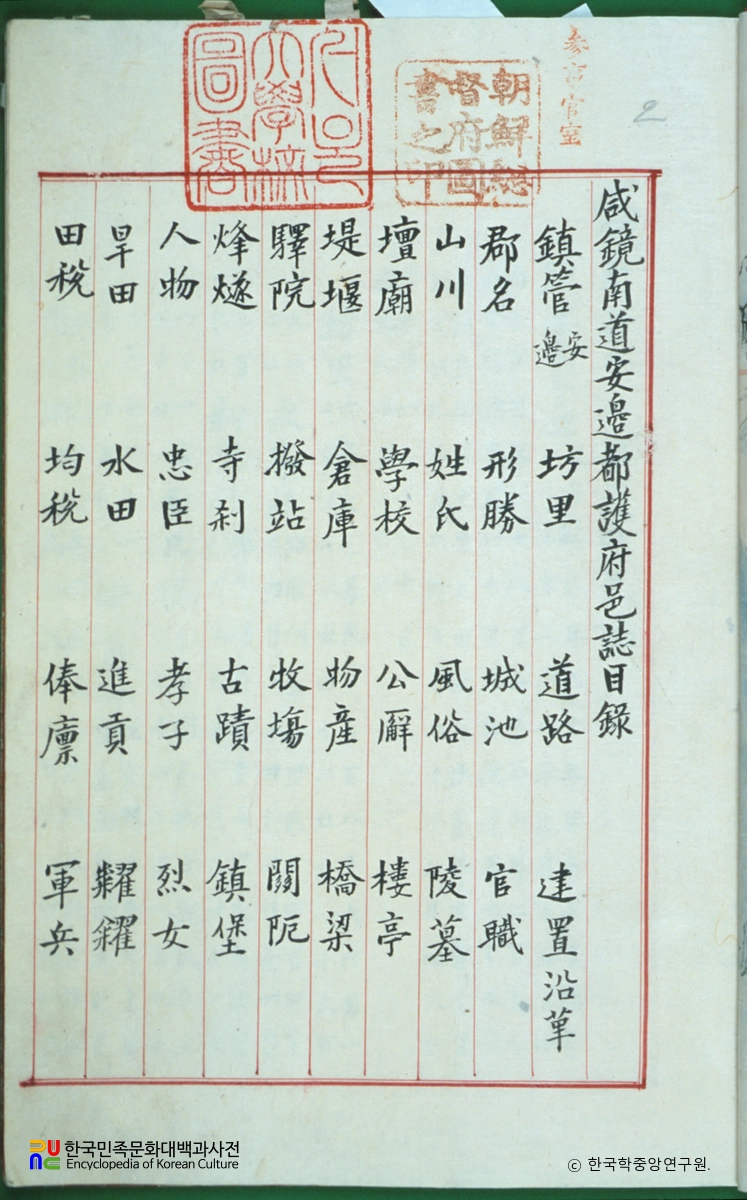 咸鏡南道安邊都護府邑誌目錄
鎮管 安邊 坊里 道路 建置沿革
郡名 形勝 城池 官職
山川 姓氏 風俗 陵墓
壇廟 學校 公廨 樓亭
堤堰 倉庫 物産 橋梁
驛院 撥站 牧塲 關阨
烽燧 寺刹 古蹟 鎮堡
人物 忠臣 孝子 烈女
旱田 水田 進貢 糶糴
田稅 均稅 俸廩 軍兵
朝鮮總督府圖書之印
大學校圖書
官室
2
한국민족문화대백과사전
Encyclopedia of Korean Culture
© 한국학중앙연구원.